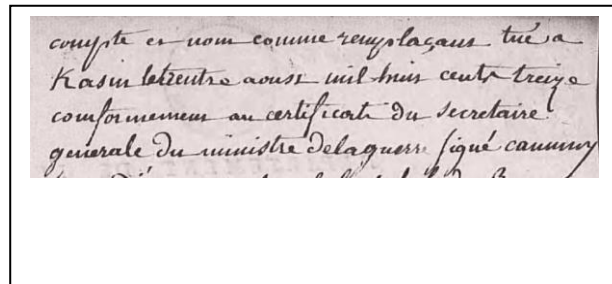 compte et nom comme remplaçant tué a
Kasin le trentre aoust mil huis cents treize
conformement au certificat du secretaire
generale du ministre de la guerre signé